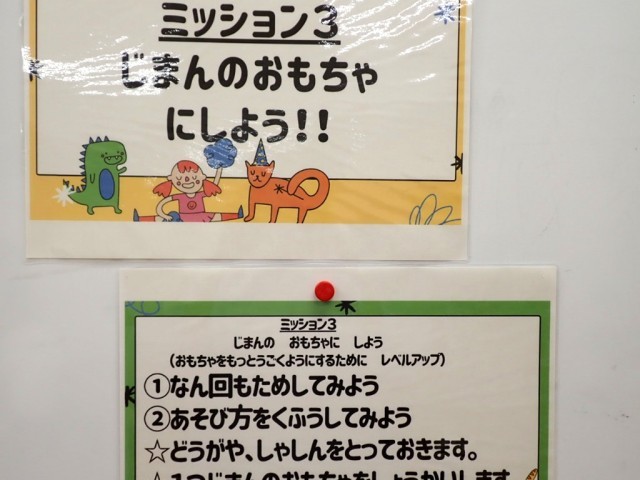 ミッション3
じまんのおもちゃ
にしよう!!
ミッション3
じまんの おもちゃに しよう
(おもちゃをもっとうごくようにするために レベルアップ)
①なん回もためしてみよう
②あそび方をくふうしてみよう
☆どうがや、しゃしんをとっておきます。
☆1つじまんのおもちゃをしょうかいします